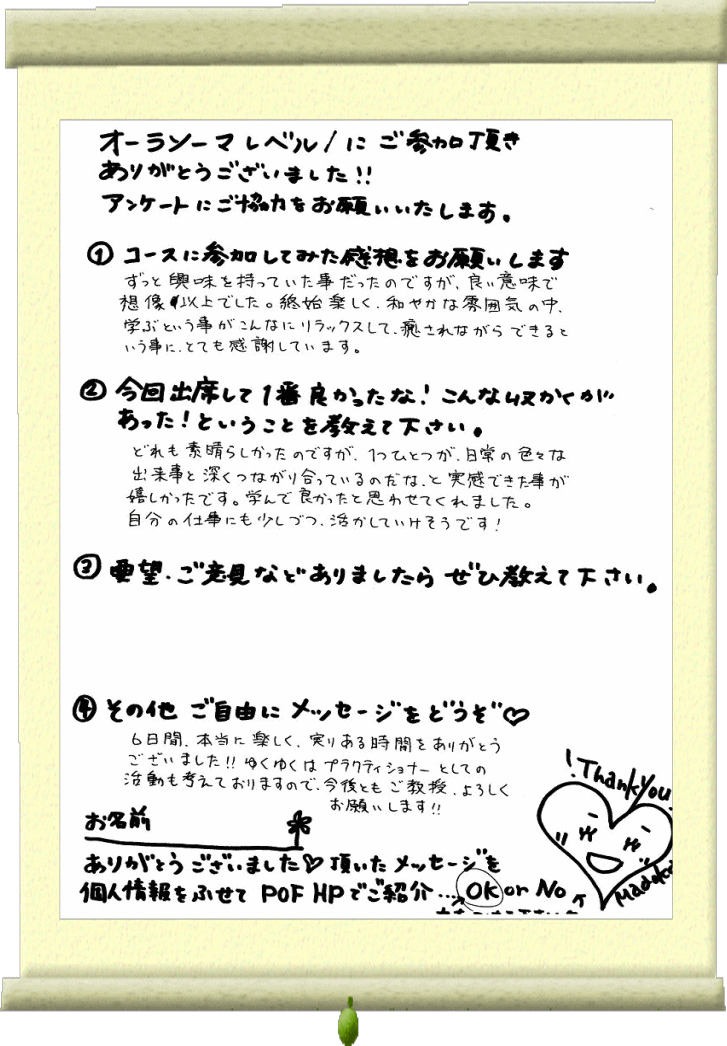 オーラソーマレベル1に ご参加頂き
ありがとうございました!!
アンケートにご協力をお願いいたします。
① コースに参加してみた感想をお願いします
ずっと興味を持っていた事だったのですが、良い意味で
想像以上でした。終始楽しく、和やかな雰囲気の中、
学ぶという事がこんなにリラックスして、癒されながらできると
いう事に、とても感謝しています。
② 今回出席して1番良かったな!こんな収かくが
あった!ということを教えて下さい。
どれも素晴らしかったのですが、1つひとつが、日常の色々な
出来事と深くつながり合っているのだな、と実感できた事が
嬉しかったです。学んで良かったと思わせてくれました。
自分の仕事にも少しづつ、活かしていけそうです!
③ 要望・ご意見などありましたら ぜひ教えて下さい。
④ その他 ご自由に メッセージをどうぞ♡
6日間、本当に楽しく、実りある時間をありがとう
ございました!! ゆくゆくは プラクティショナーとしての
活動も考えておりますので、今後とも ご教授、よろしく
お願いします!!
!Thank You
お名前
Madoka
ありがとうございました♡ 頂いた メッセージを
個人情報をふせて POF HPでご紹介… OK or No